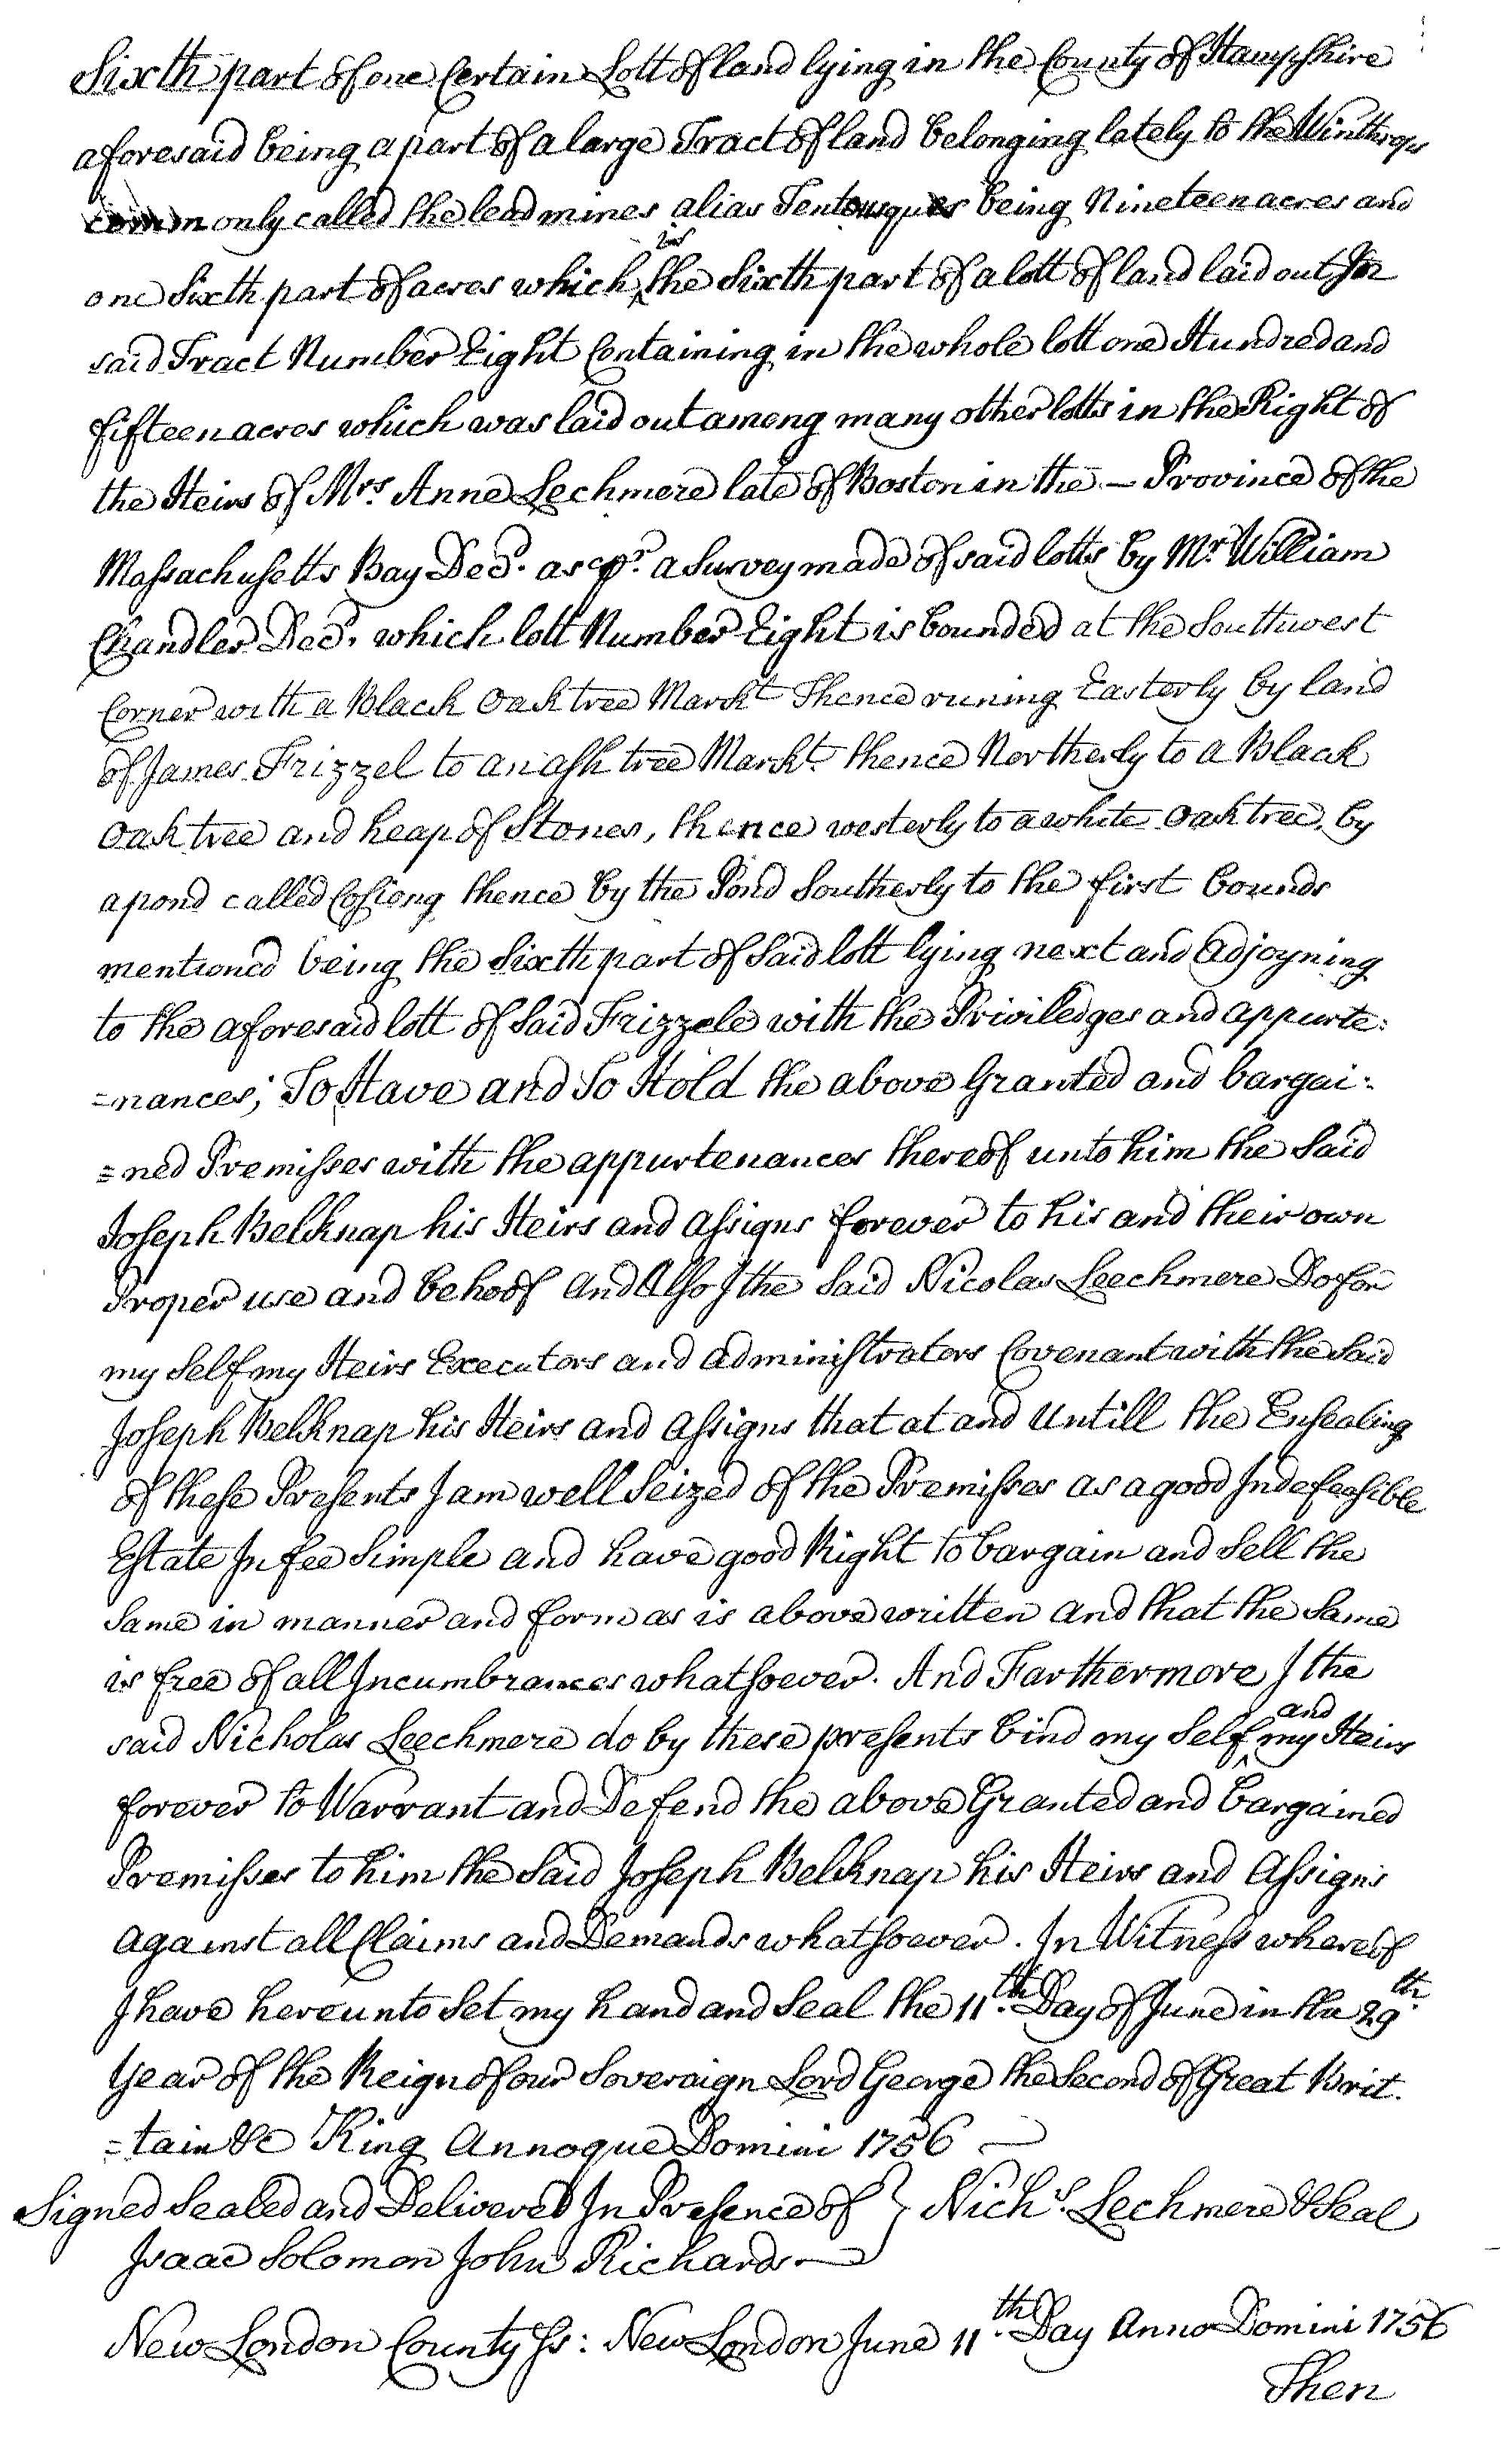 Sixth part of one Certain Lott of land lying in the County of Hampshire
aforesaid being a part of a large Tract of land belonging lately to the Winthrops
commonly called the lead mines alias Tentousques being Nineteen acres and
one Sixth part of acres which is the Sixth part of a lott of land laid out In
said Tract Number Eight Containing in the whole lott one Hundred and
fifteen acres which was laid out among many other lotts in the Right of
the Heirs of Mrs. Anne Lechmere late of Boston in the — Province of the
Massachusetts Bay Decd. as pr. a Survey made of said lotts by Mr. William
Chandler Decd. which lott Number Eight is bounded at the Southwest
Corner with a Black Oak tree Markt Thence runing Easterly by land
of James Frizzel to an ash tree Markt. thence Northerly to a Black
Oak tree and heap of Stones, thence westerly to a white Oak tree by
a pond called thence by the Pond Southerly to the first bounds
mentioned being the Sixth part of Said lott lying next and Adjoyning
to the aforesaid lott of Said Frizzele with the Priviledges and appurte:
=nances; To Have and To Hold the above Granted and bargai:
=ned Premisses with the appurtenances thereof unto him the Said
Joseph Belknap his Heirs and Assigns forever to his and their own
Proper use and behoof And Also I the Said Nicolas Leechmere Do for
my Self my Heirs Executors and administrators Covenant with the Said
Joseph Belknap his Heirs and Assigns that at and Untill the Ensealing
of these Presents I am well Seized of the Premisses as a good Indefeasible
Estate In fee Simple and have good Right to bargain and Sell the
Same in manner and form as is above written and that the Same
is free of all Incumbrances whatsoever. And Farthermore I the
said Nicholas Leechmere do by these presents bind my Self and my Heirs
forever to Warrant and Defend the above Granted and bargained
Premisses to him the Said Joseph Belknap his Heirs and Assigns
against all Claims and Demands whatsoever. In Witness whereof
I have hereunto Set my hand and Seal the 11th. Day of June in the 29th.
Year of the Reign of our Sovereign Lord George the Second of Great Brit.
=tain &c King Annoque Domini 1756
Signed Sealed and Delivered In Presence of } Nichs. Lechmere & Seal
Isaac Solomon John Richards
New London County Ss: New London June 11th. Day Anno Domini 1756
Then